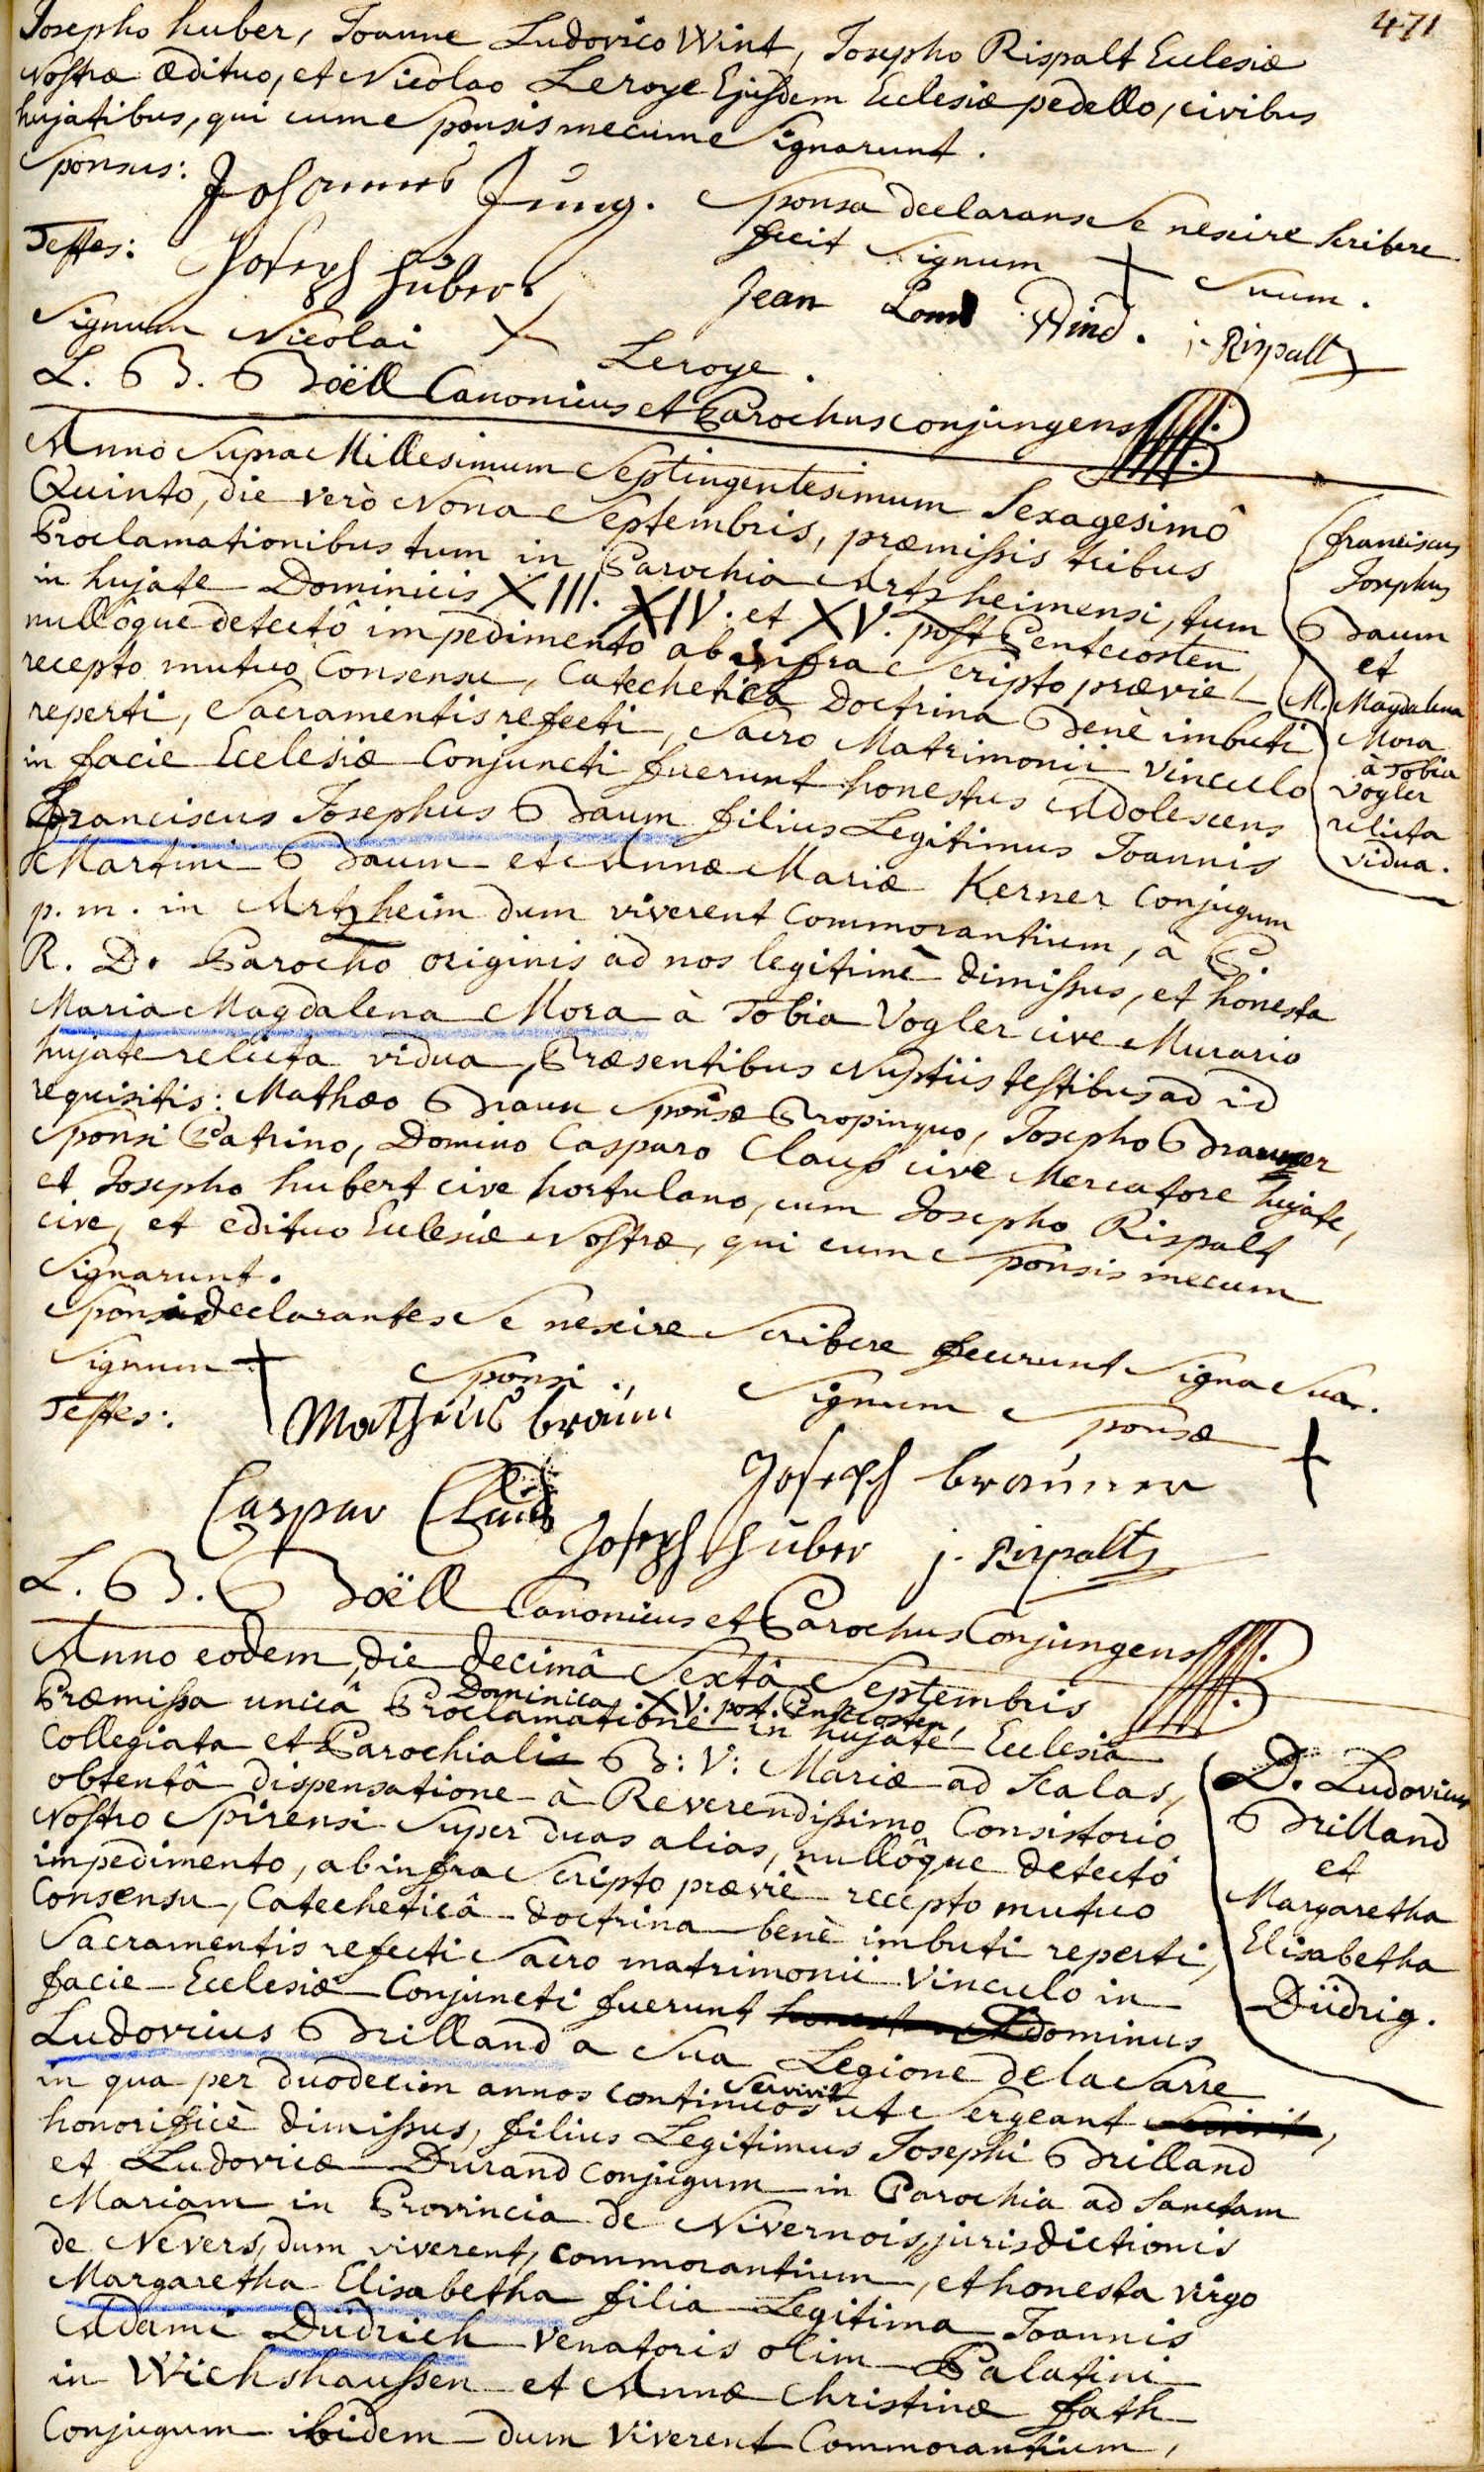 471
Josepho huber, Joanne Ludovico Wint, Josepho Rispalt Ecclesiæ
Nostræ Ædituo, et Nicolao Leroye Ejusdem Ecclesiæ pedello, civibus
hujatibus, qui cum Sponsis mecum Signarunt.
Sponsus: Johannes Jung. Sponsa declarans Se nescire scribere
fecit Signum + Suum.
Testes: Joseph Huber. Jean Wind. j. Rispalt
Signum Nicolai X Leroye.
L. B. Boëll Canonicus et Parochus conjungens
Anno Supra Millesimum Septingentesimum Sexagesimô
Quinto, die verò Nona Septembris, præmissis tribus
Proclamationibus tum in Parochia Artzheimensi, tum
in hujate Dominicis XIII. XIV. et XV. post Pentecosten
nullôque detectô impedimento ab infra Scripto prævie
recepto mutuo Consensu, Catechetica Doctrina benè imbuti
reperti, Sacramentis refecti, Sacro Matrimonii vinculo
in facie Ecclesiæ Conjuncti fuerunt honestus Adolescens
Franciscus Josephus Baum filius Legitimus Joannis
Martini Baum et Annæ Mariæ Kerner Conjugum
p. m. in Artzheim dum viverent Commorantium, à P
R. D. Parocho originis ad nos legitimè dimissus, et honesta
Maria Magdalena Mora à Tobia Vogler cive Murario
hujate relicta vidua, Præsentibus Nuptiis testibus ad id
requisitis: Mathæo Braun Sponsæ Propinquo, Josepho Brauner
Sponsi Patrino, Domino Casparo Claus cive Mercatore hujate,
et Josepho hubert cive hortulano, cum Josepho Rispalt
cive, et edituo Ecclesiæ Nostræ, qui cum Sponsis mecum
Signarunt.
Sponsi declarantes Se nescire Scribere fecerunt Signa Sua.
Signum + Sponsi Signum Sponsæ +
Testes: Matheus braun Joseph brauner
Caspar Claus Joseph Huber j. Rispalt
L. B. Boëll Canonicus et Parochus Conjungens
franciscus
Josephus
Baum
et
M. Magdalena
Mora
à Tobia
Vogler
relicta
vidua.
Anno eodem, die decimâ Sextâ Septembris
Dominica XV. post Pentecosten,
Præmissa unicâ Proclamatione in hujate Ecclesia
Collegiata et Parochiali B: V: Mariæ ad Scalas,
obtentâ dispensatione à Reverendissimo Consistorio
Nostro Spirensi Super duas alias, nullôque detectô
impedimento, ab infra Scripto præviè recepto mutuo
Consensu, Catecheticâ doctrina benè imbuti reperti,
Sacramentis refecti Sacro matrimonii vinculo in
facie Ecclesiæ Conjuncti fuerunt dominus
Ludovicus Brilland a Sua Legione de la Sarre
in qua per duodecim annos continuos Servivit ut Sergeant
honorificè dimissus, filius Legitimus Josephi Brilland
et Ludovicæ Durand Conjugum in Parochia ad Sanctam
Mariam in Provincia de Nivernois, jurisdictionis
de Nevers, dum viverent, commorantium, et honesta virgo
Margaretha Elisabetha filia Legitima Joannis
Adami Düdrich venatoris olim Palatini
in Wichshaussen et Annæ Christinæ fath
Conjugum ibidem dum viverent Commorantium,
D. Ludovicus
Brilland
et
Margaretha
Elisabetha
Düdrig.